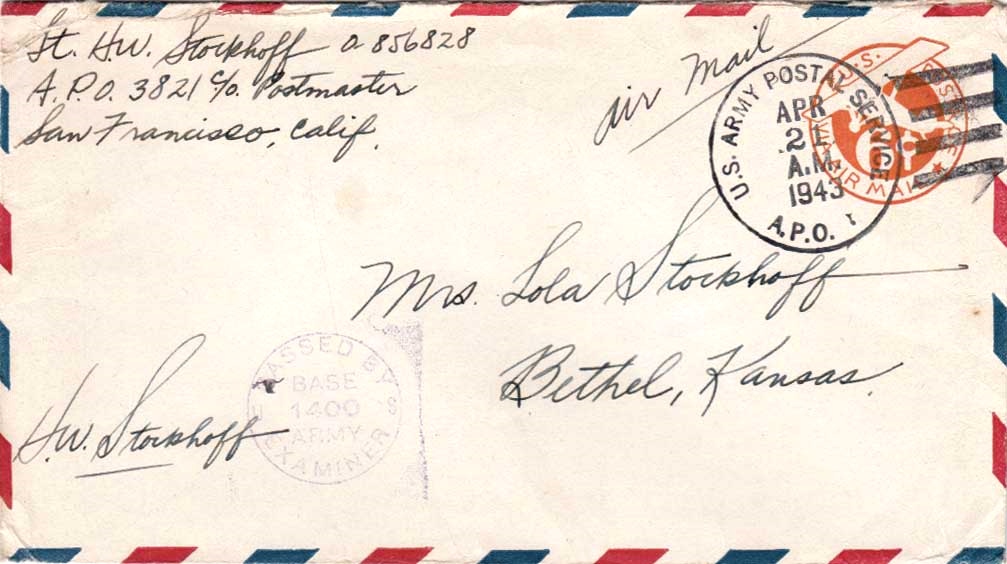 Lt. H.W. Stockhoff O-856828
A.P.O. 3821 c/o. Postmaster
San Francisco, Calif.
Air Mail
U.S. ARMY POSTAL SERVICE
APR
21
A.M.
1943
A.P.O.
U.S. POSTAGE
VIA AIR MAIL
6
Mrs. Lola Stockhoff
Bethel, Kansas.
PASSED BY
BASE
1400
ARMY
EXAMINER
U S
H.W. Stockhoff